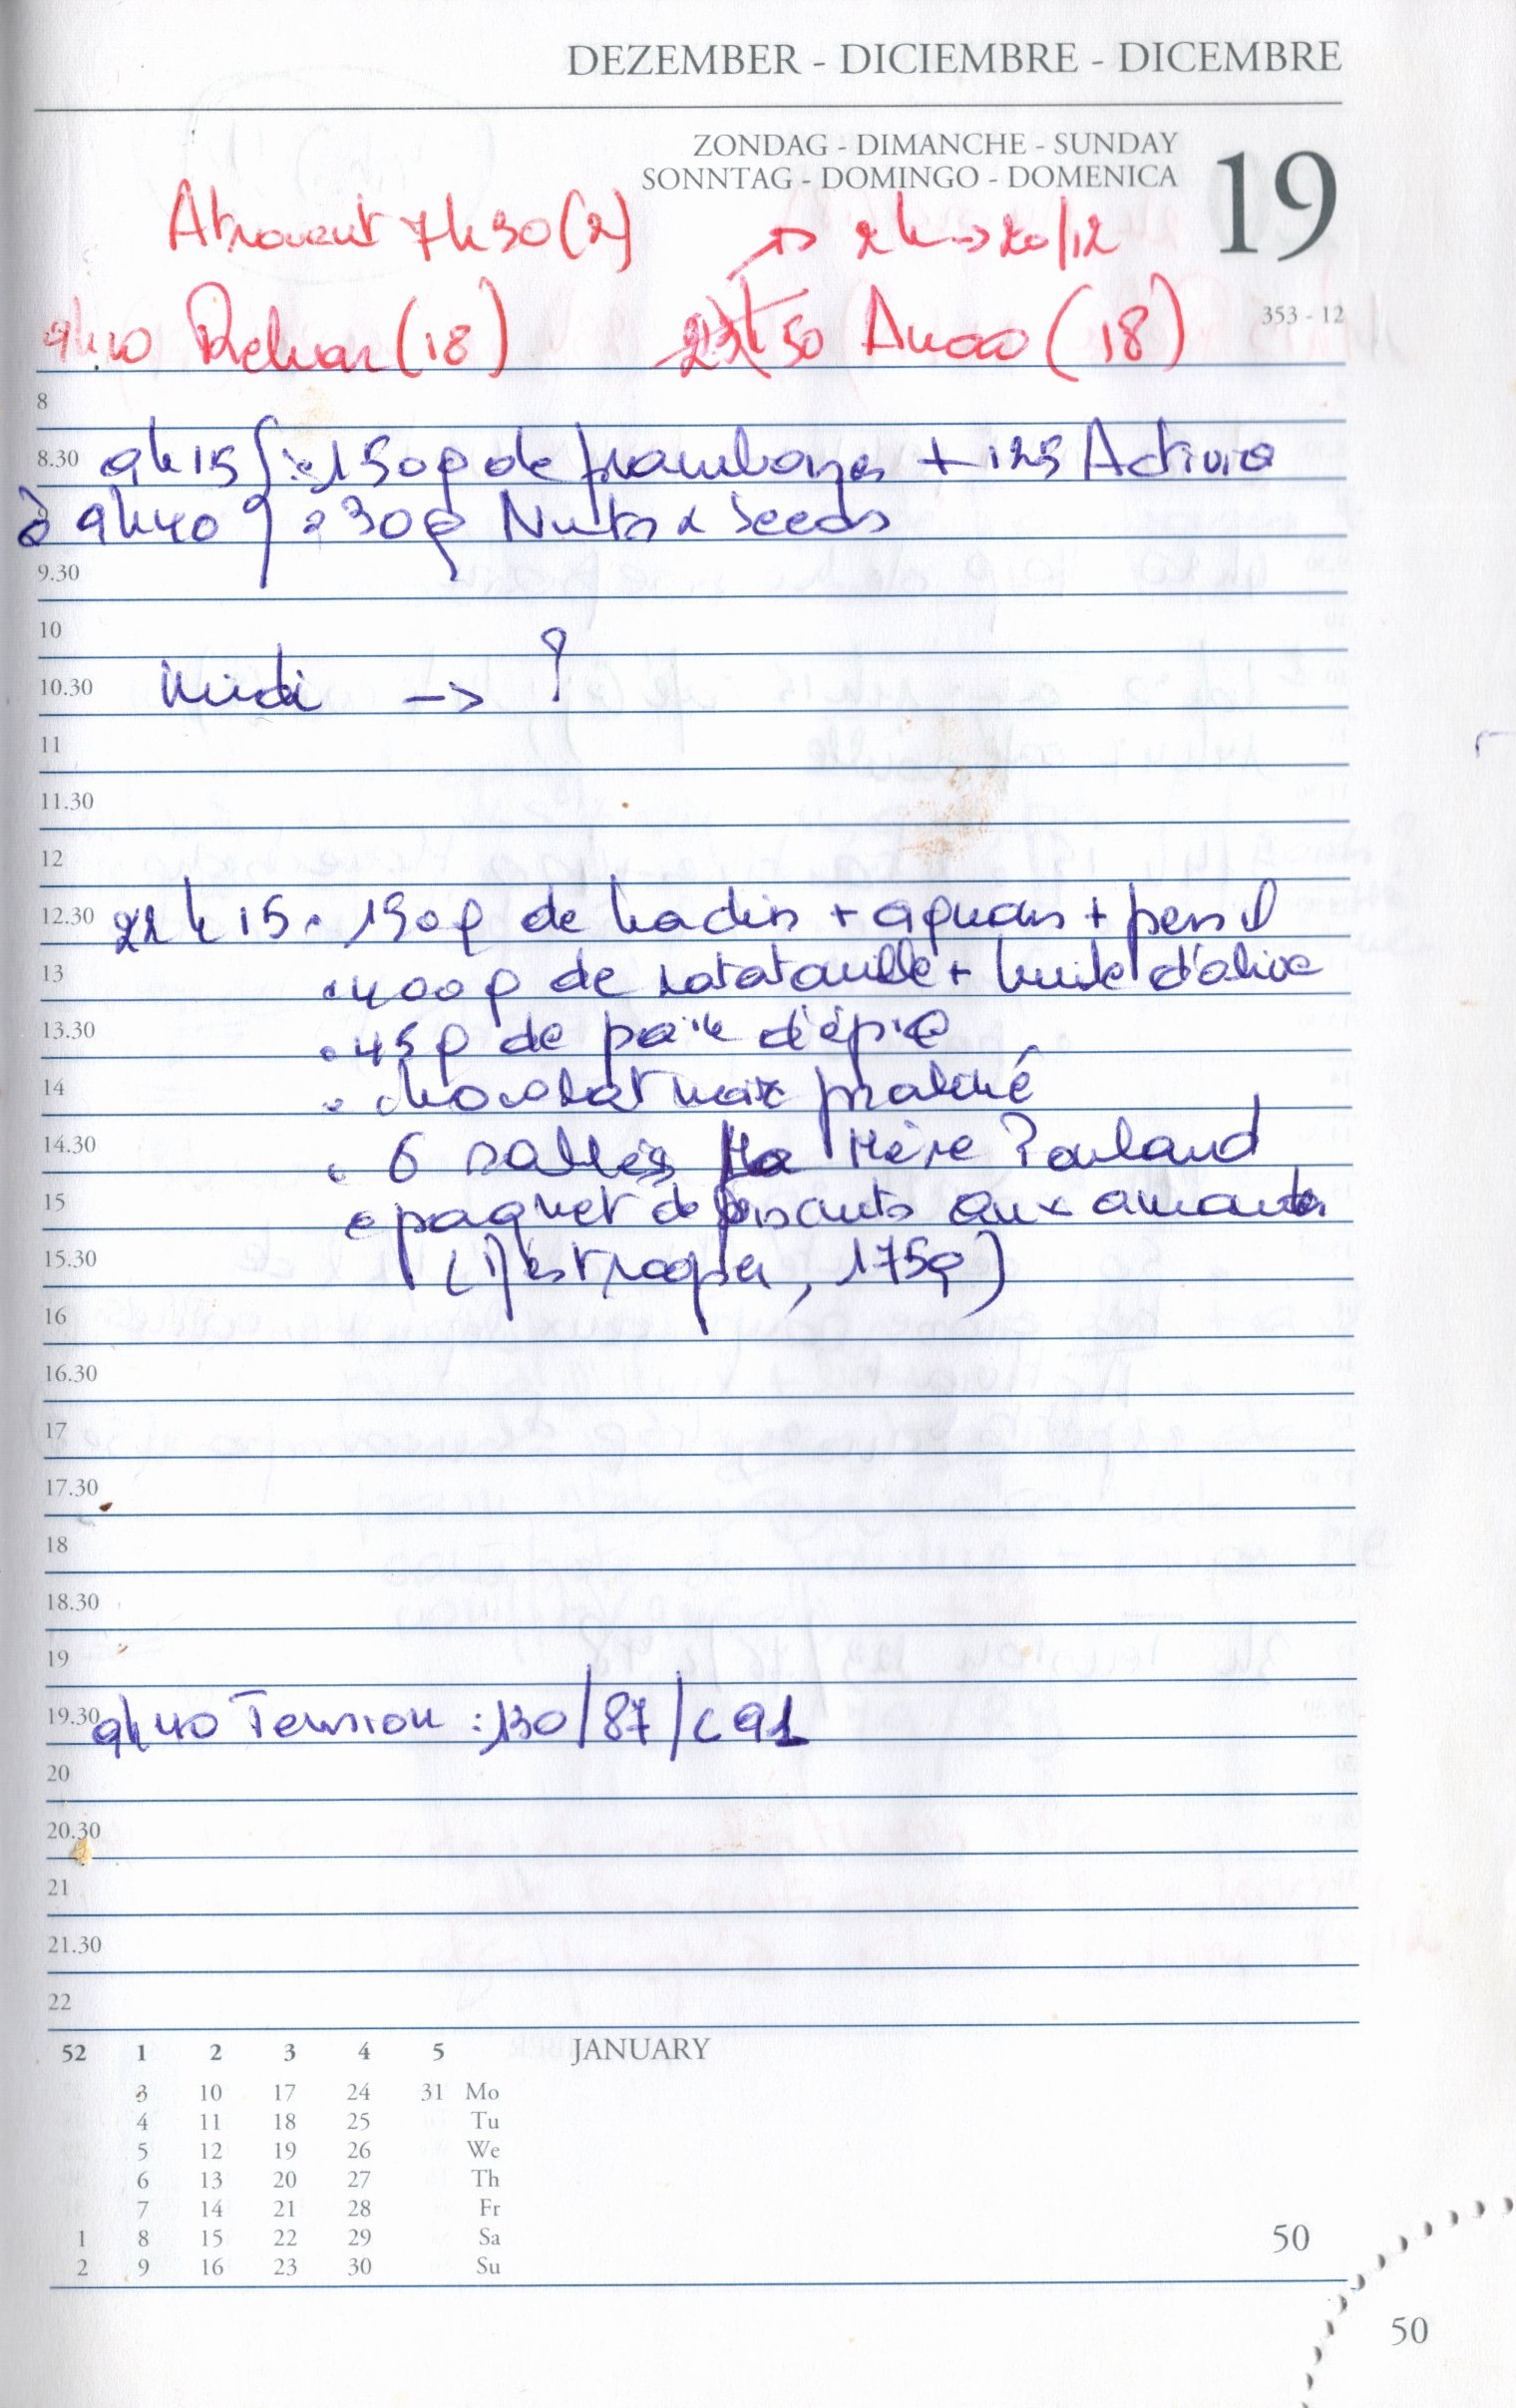 DEZEMBER - DICIEMBRE - DICEMBRE
ZONDAG - DIMANCHE - SUNDAY
SONNTAG - DOMINGO - DOMENICA
19
353 - 12
Atrovent 7h30 (2) → 2h → 20/12
9h40 Relvar (18) 23h50 Anoro (18)
8
8.30 9h15 : 150g de framboises + 125 Activia
à 9h40 : 30g Nuts & Seeds
9.30
10
10.30 Midi -> ?
11
11.30
12
12.30 22h15 . 150g de + + persil
13 . 400g de ratatouille + huile d'olive
13.30 . 45g de pain d'épice
14 . chocolat noir praliné
14.30 . 6 sablés La Mère Poulard
15 . paquet de biscuits aux amandes
15.30 ( , 175g)
16
16.30
17
17.30
18
18.30
19
19.30 9h40 Tension : 130/87/c 91
20
20.30
21
21.30
22
52 1 2 3 4 5 JANUARY
3 10 17 24 31 Mo
4 11 18 25 Tu
5 12 19 26 We
6 13 20 27 Th
7 14 21 28 Fr
1 8 15 22 29 Sa
2 9 16 23 30 Su
50
50